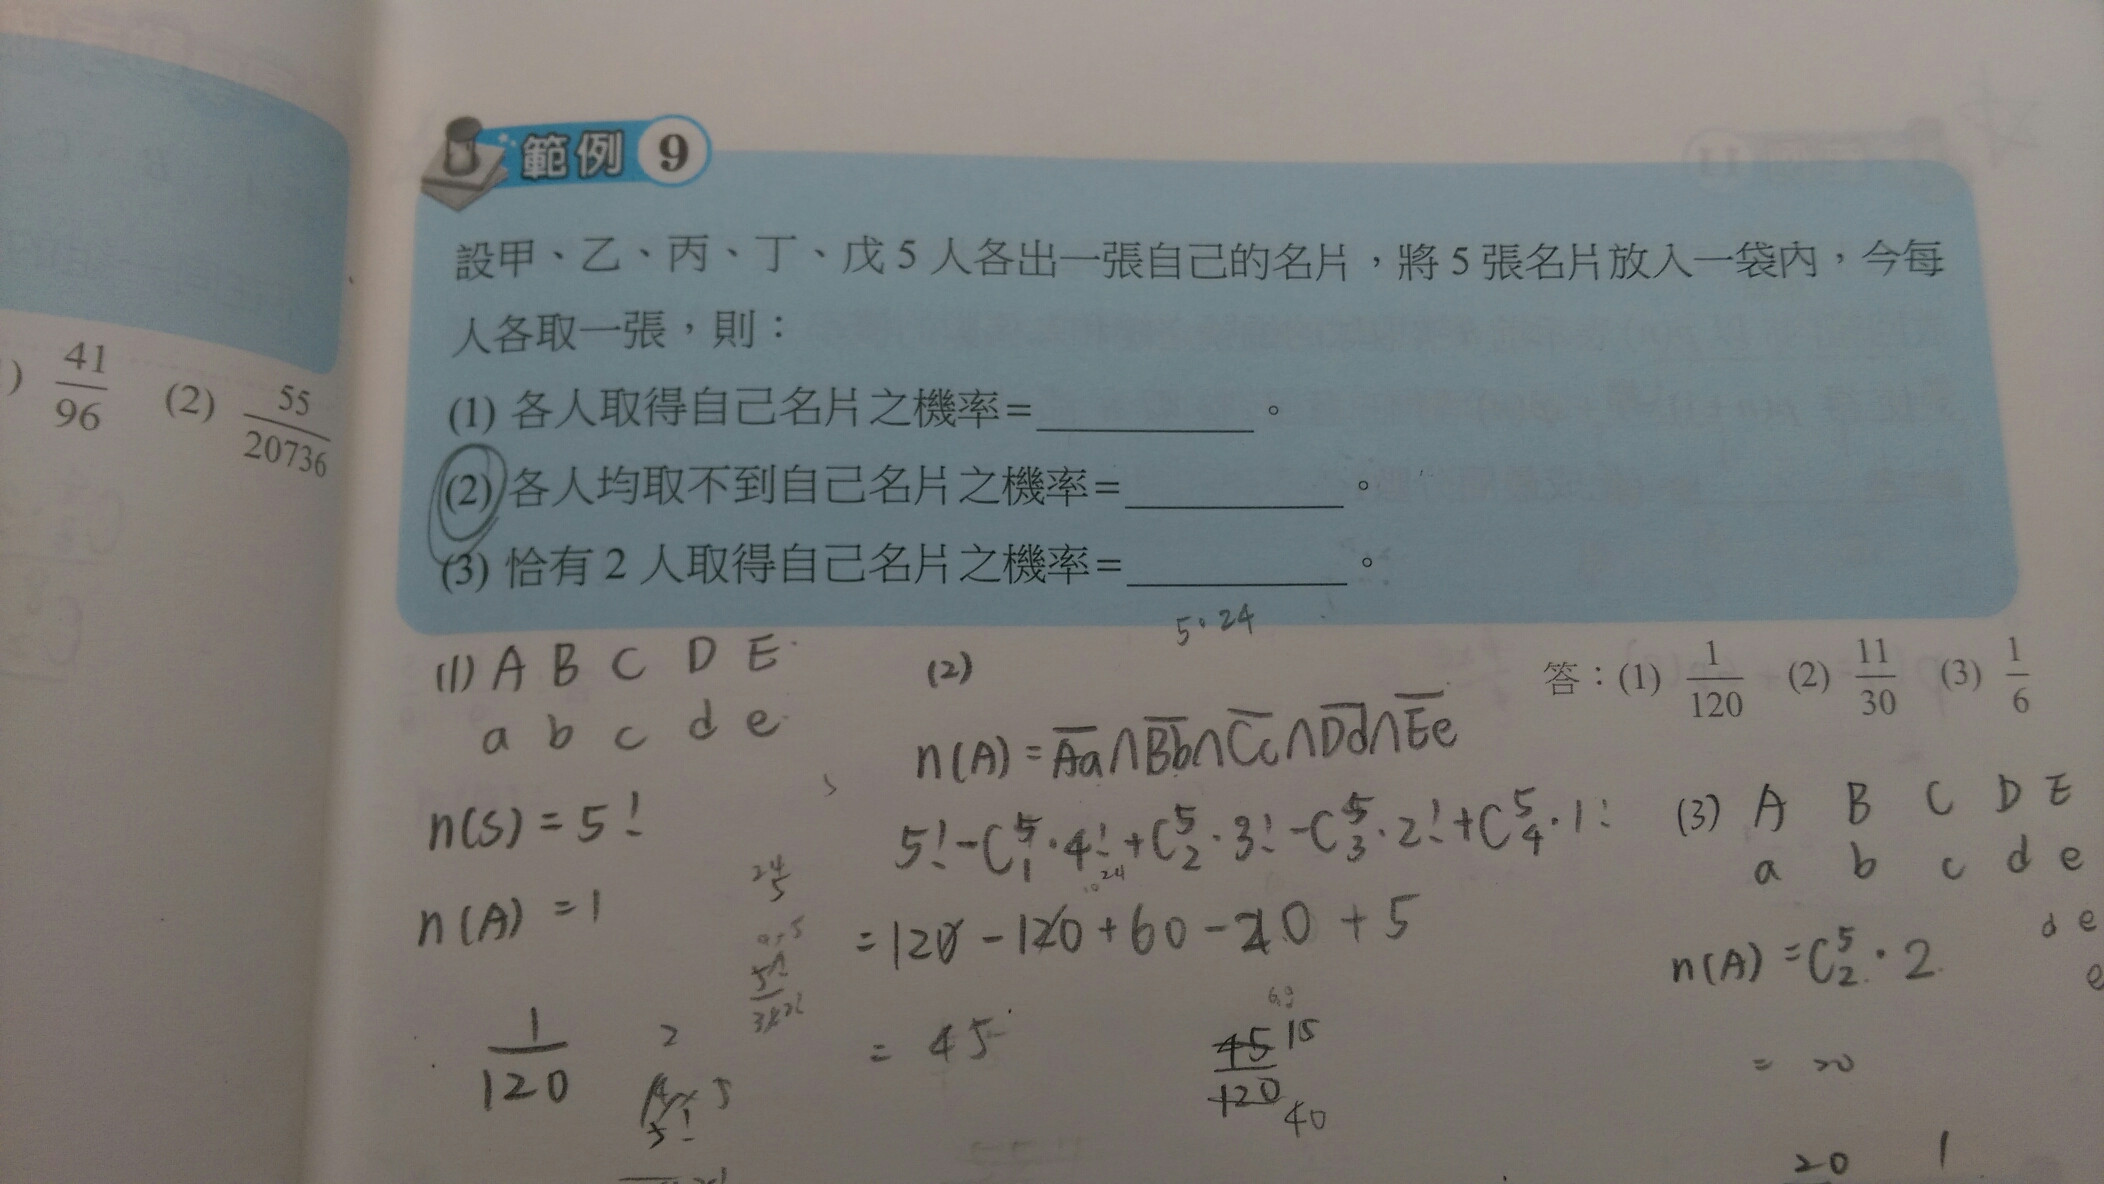 範例 9
設甲、乙、丙、丁、戊 5 人各出一張自己的名片，將 5 張名片放入一袋內，今每
人各取一張，則：
(1) 各人取得自己名片之機率=________。
(2) 各人均取不到自己名片之機率=________。
(3) 恰有 2 人取得自己名片之機率=________。
答：(1) 1/120 (2) 11/30 (3) 1/6
) 41/96 (2) 55/20736
5·24
(1) A B C D E
a b c d e
n(S) = 5!
n(A) = 1
1/120
(2)
n(A) = \overline{Aa}∩\overline{Bb}∩\overline{Cc}∩\overline{Dd}∩\overline{Ee}
5! - C^5_1·4! + C^5_2·3! - C^5_3·2! + C^5_4·1!
24
= 120 - 120 + 60 - 20 + 5
= 45
45/120 15 40
(3) A B C D E
a b c d e
d e
e
n(A) = C^5_2·2
= 20
20 1